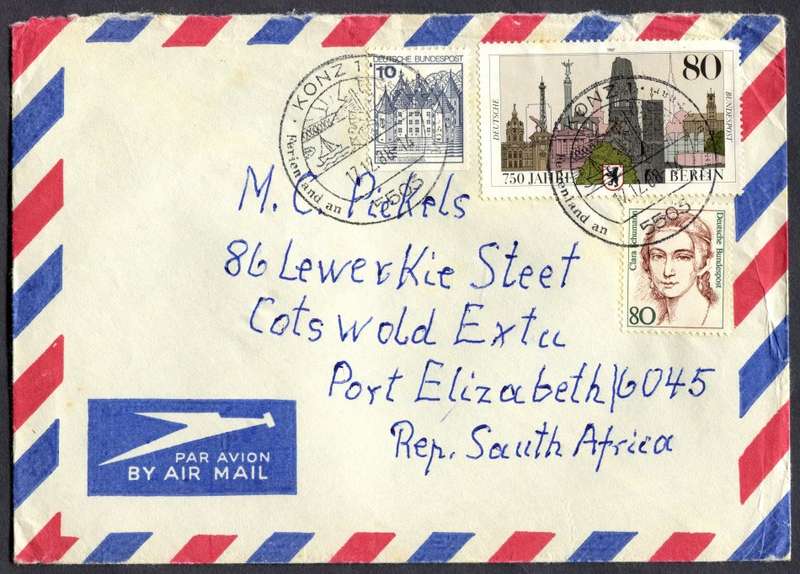 KONZ 1
Ferienland an
17.12.86-14
5503
10
DEUTSCHE BUNDESPOST
80
DEUTSCHE
BUNDESPOST
750 JAHRE
BERLIN
KONZ 1
Ferienland an
17.12.86
5503
Deutsche Bundespost
80
M. C. Pickels
86 Lewerkie Steet
Cotswold Extu
Port Elizabeth/6045
Rep. South Africa
PAR AVION
BY AIR MAIL